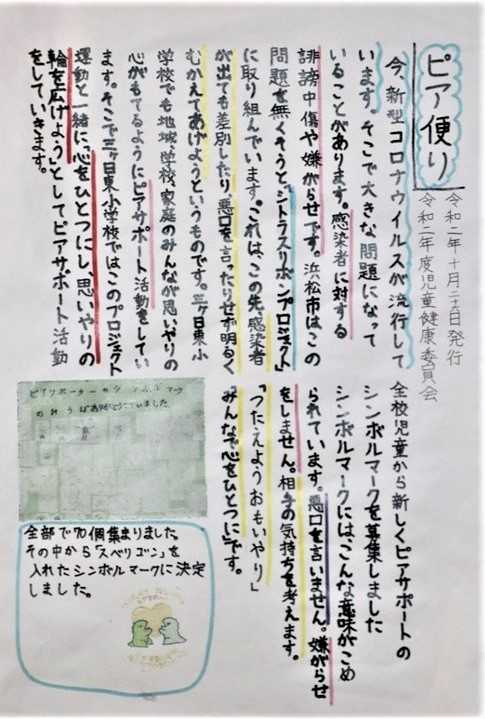 ピア便り
令和二年十月二十三日発行
令和二年度児童健康委員会
今、新型コロナウイルスが流行して
います。そこで大きな問題になって
いることがあります。感染者に対する
誹謗中傷や嫌がらせです。浜松市はこの
問題を無くそうと、「シトラスリボンプロジェクト」
に取り組んでいます。これは、この先、感染者
が出ても差別したり悪口を言ったりせず明るく
むかえてあげようというものです。三ヶ日東小
学校でも地域、学校、家庭のみんなが思いやりの
心がもてるようにピアサポート活動をしてい
ます。そこで三ヶ日東小学校ではこのプロジェクト
運動と一緒に、「心をひとつにし、思いやりの
輪を広げよう」としてピアサポート活動
をしていきます。
全校児童から新しくピアサポートの
シンボルマークを募集しました
シンボルマークには、こんな意味がこめ
られています。悪口を言いません。嫌がらせ
をしません。相手の気持ちを考えます。
「つたえようおもいやり」
「みんなで心をひとつに」です。
全部で70個集まりました。
その中から「スベリゴン」を
入れたシンボルマークに決定
しました。